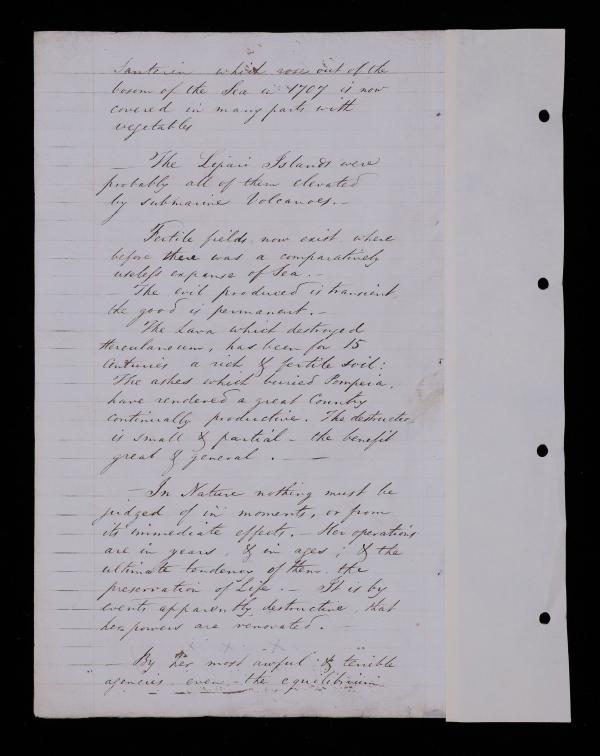 Santorin which rose out of the
bosom of the Sea in 1707 is now
covered in many parts with
vegetables
— The Lipari Islands were
probably all of them elevated
by submarine Volcanoes. —
Fertile fields now exist where
before there was a comparatively
useless expanse of Sea. —
— The evil produced is transient
the good is permanent. —
The Lava which destroyed
Herculaneum, has been for 15
Centuries a rich & fertile soil:
The ashes which buried Pompeia,
have rendered a great Country
continually productive. The destruction
is small & partial — the benefit
great & general. — —
— In Nature nothing must be
judged of in moments, or from
its immediate effects. — Her operations
are in years, & in ages; & the
ultimate tendency of them the
preservation of Life. — It is by
events apparently destructive that
her powers are renovated. —
x x x
— By her most awful & terrible
agencies even the equilibrium